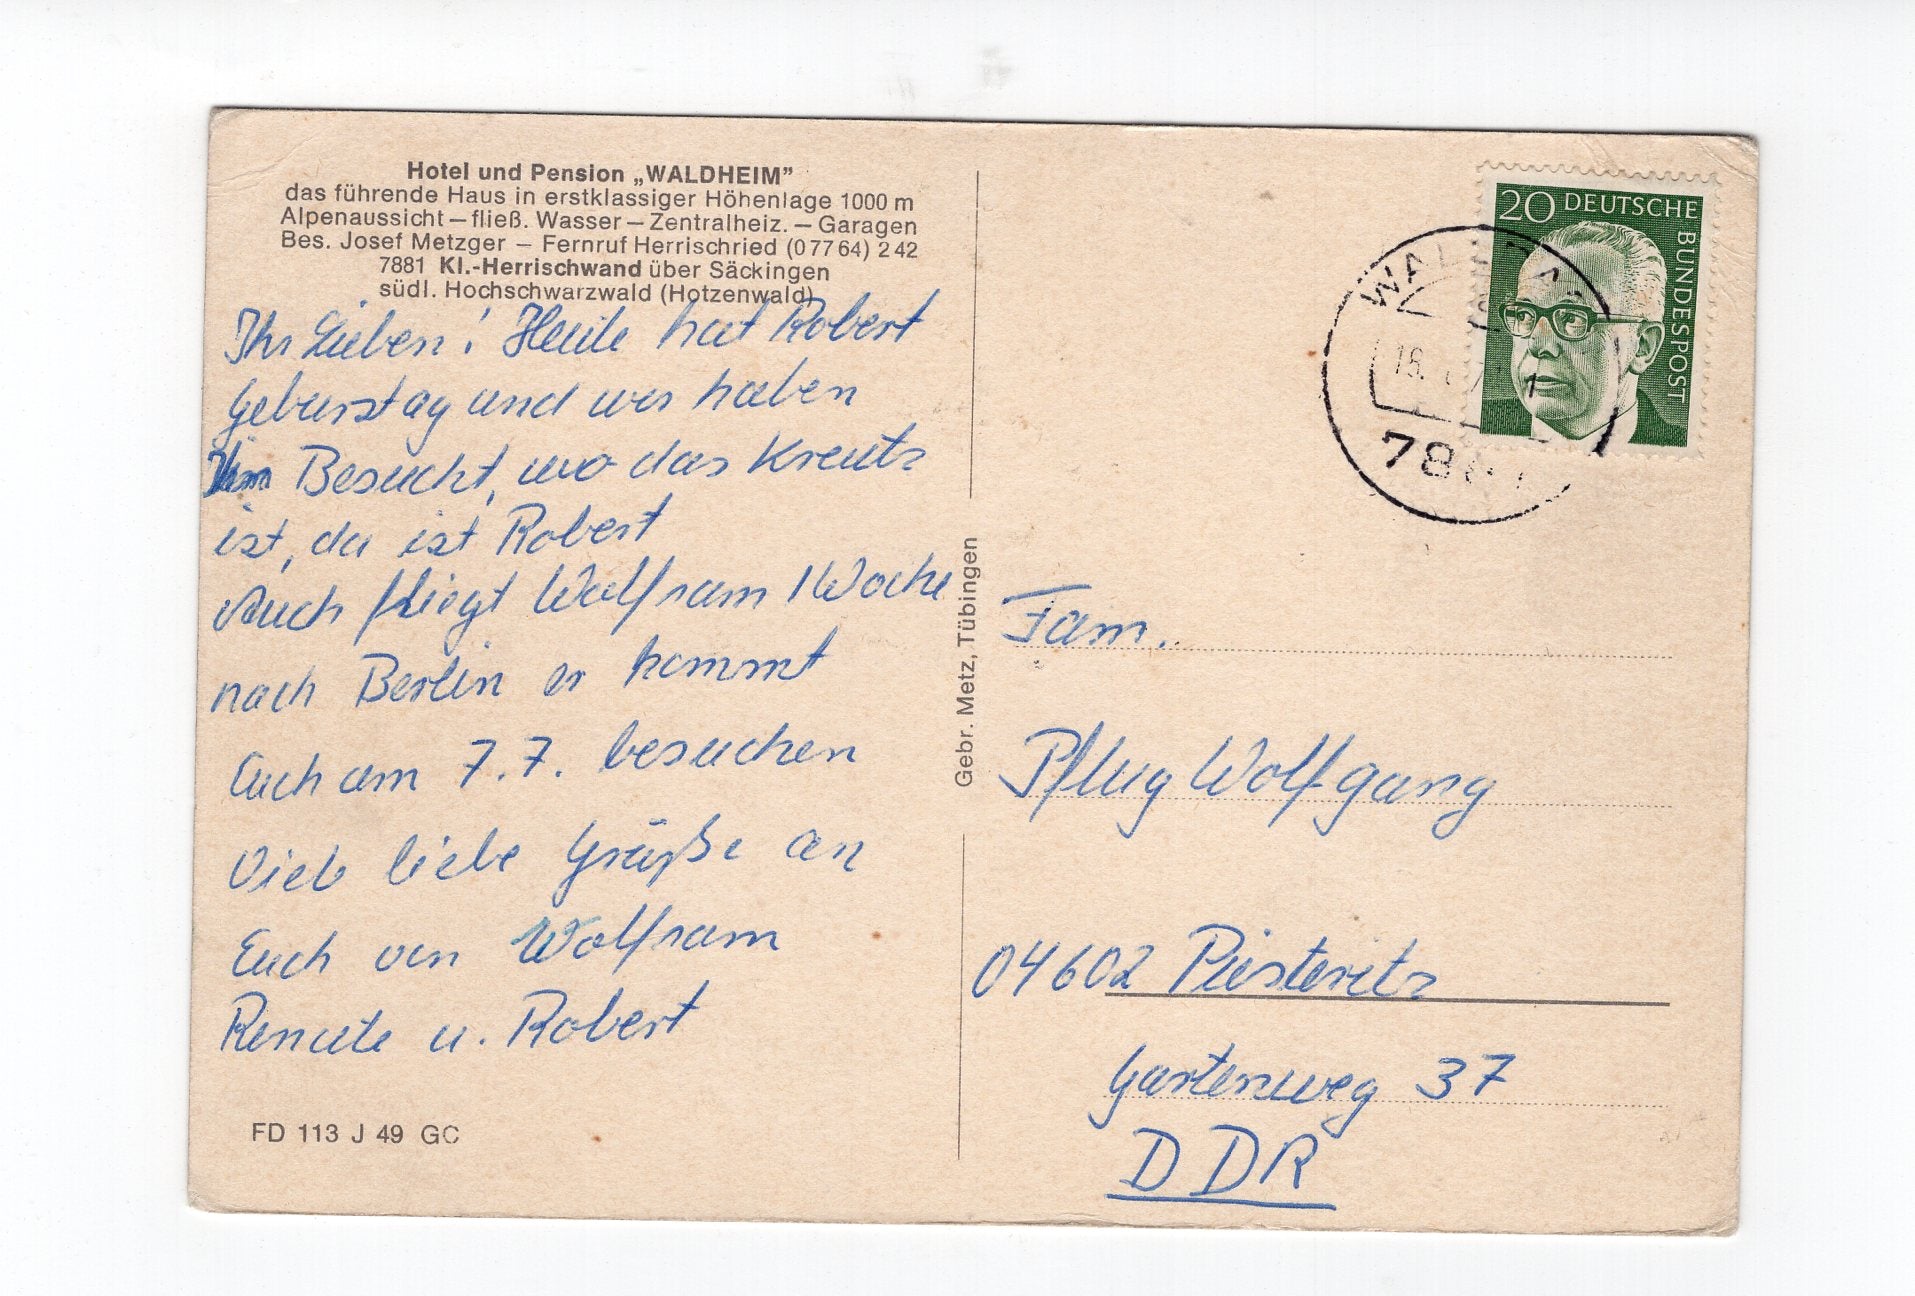 Hotel und Pension „WALDHEIM”
das führende Haus in erstklassiger Höhenlage 1000 m
Alpenaussicht – fließ. Wasser – Zentralheiz. – Garagen
Bes. Josef Metzger – Fernruf Herrischried (0 77 64) 2 42
7881 Kl.-Herrischwand über Säckingen
südl. Hochschwarzwald (Hotzenwald)
Ihr Lieben! Heute hat Robert
Geburstag und wir haben
Ihm Besucht, wo das Kreutz
ist, da ist Robert
Auch fliegt Wolfram 1 Woche
nach Berlin er kommt
Euch am 7.7. besuchen
Viele liebe Grüße an
Euch von Wolfram
Renate u. Robert
FD 113 J 49 GC
Gebr. Metz, Tübingen
20 DEUTSCHE
BUNDESPOST
Fam.
Pflug Wolfgang
04602 Piesteritz
Gartenweg 37
DDR